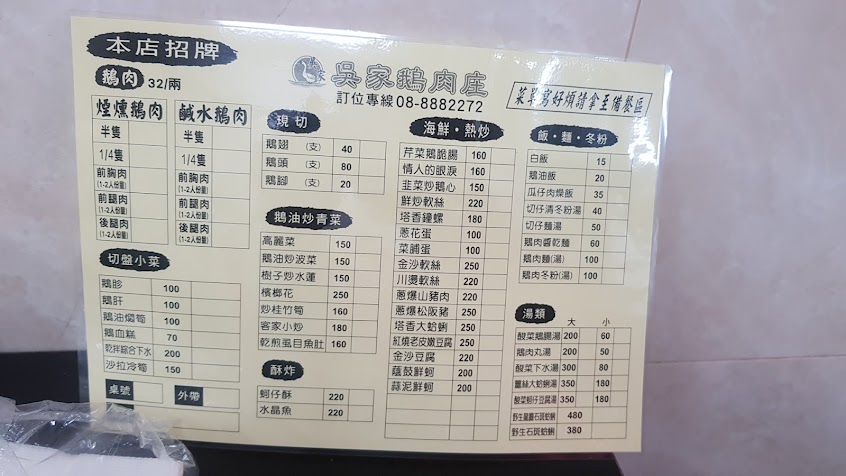 本店招牌
吳家鵝肉庄
訂位專線08-8882272
菜單寫好煩請拿至備餐區
鵝肉 32/兩
煙燻鵝肉 鹹水鵝肉
半隻 半隻
1/4隻 1/4隻
前胸肉 前胸肉
(1-2人份量) (1-2人份量)
前腿肉 前腿肉
(1-2人份量) (1-2人份量)
後腿肉 後腿肉
(1-2人份量) (1-2人份量)
切盤小菜
鵝胗 100
鵝肝 100
鵝油燜筍 100
鵝血糕 70
乾拌綜合下水 200
沙拉冷筍 150
桌號 外帶
現切
鵝翅 (支) 40
鵝頭 (支) 80
鵝腳 (支) 20
鵝油炒青菜
高麗菜 150
鵝油炒波菜 150
樹子炒水蓮 150
檳榔花 250
炒桂竹筍 160
客家小炒 180
乾煎虱目魚肚 160
酥炸
蚵仔酥 220
水晶魚 220
海鮮・熱炒
芹菜鵝脆腸 160
情人的眼淚 160
韭菜炒鵝心 150
鮮炒軟絲 220
塔香鐘螺 180
蔥花蛋 100
菜脯蛋 100
金沙軟絲 250
川燙軟絲 220
蔥爆山豬肉 220
蔥爆松阪豬 250
塔香大蛤蜊 250
紅燒老皮嫩豆腐 250
金沙豆腐 220
蔭鼓鮮蚵 200
蒜泥鮮蚵 200
飯・麵・冬粉
白飯 15
鵝油飯 20
瓜仔肉燥飯 35
切仔清冬粉湯 40
切仔麵湯 50
鵝肉醬乾麵 60
鵝肉麵(湯) 100
鵝肉冬粉(湯) 100
湯類 大 小
酸菜鵝腸湯 200 60
鵝肉丸湯 200 50
酸菜下水湯 300 80
薑絲大蛤蜊湯 350 180
酸菜蚵仔豆腐湯 350 180
野生龍膽石斑蛤蜊 480
野生石斑蛤蜊 380